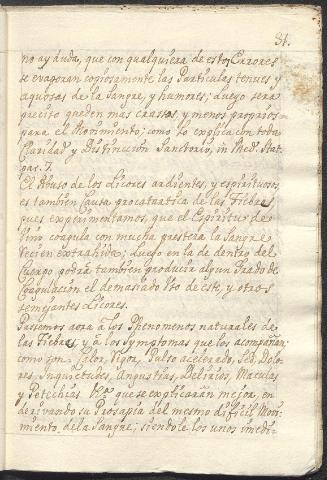 31.
no ay duda, que con qualquiera de estos Errores
se evaporan copiosamente las Particulas tenues y
aquosas de la Sangre, y humores; luego sera
preciso queden mas crassos, y menos proprios
para el Movimiento; como lo explica con toda
Claridad y Distincion Sanctorio, in Med. Stat.
pag. 7.
El Abuso de los Licores ardientes, y espirituosos
es tambien Causa procatartica de las Fiebres,
pues experimentamos, que el Espiritu de
Vino coagula con mucha presteza la Sangre
recien extrahida; luego en la de dentro del
Cuerpo podrà tambien producir algun Grado de
Coagulacion el demasiado Vso de este, y otros
semejantes Licores.
Passemos aora à los Phenomenos naturales de
las Fiebres, y à los Symptomas que los acompañan
como son Calor, Rigor, Pulso acelerado, Sed, Dolo-
res, Inquietudes, Angustias, Delirios, Maculas
y Petechias &c.a que se explicaràn mejor, en
derivando su Prosapia del mesmo dificil Movi-
miento de la Sangre; siendole los unos imedi-